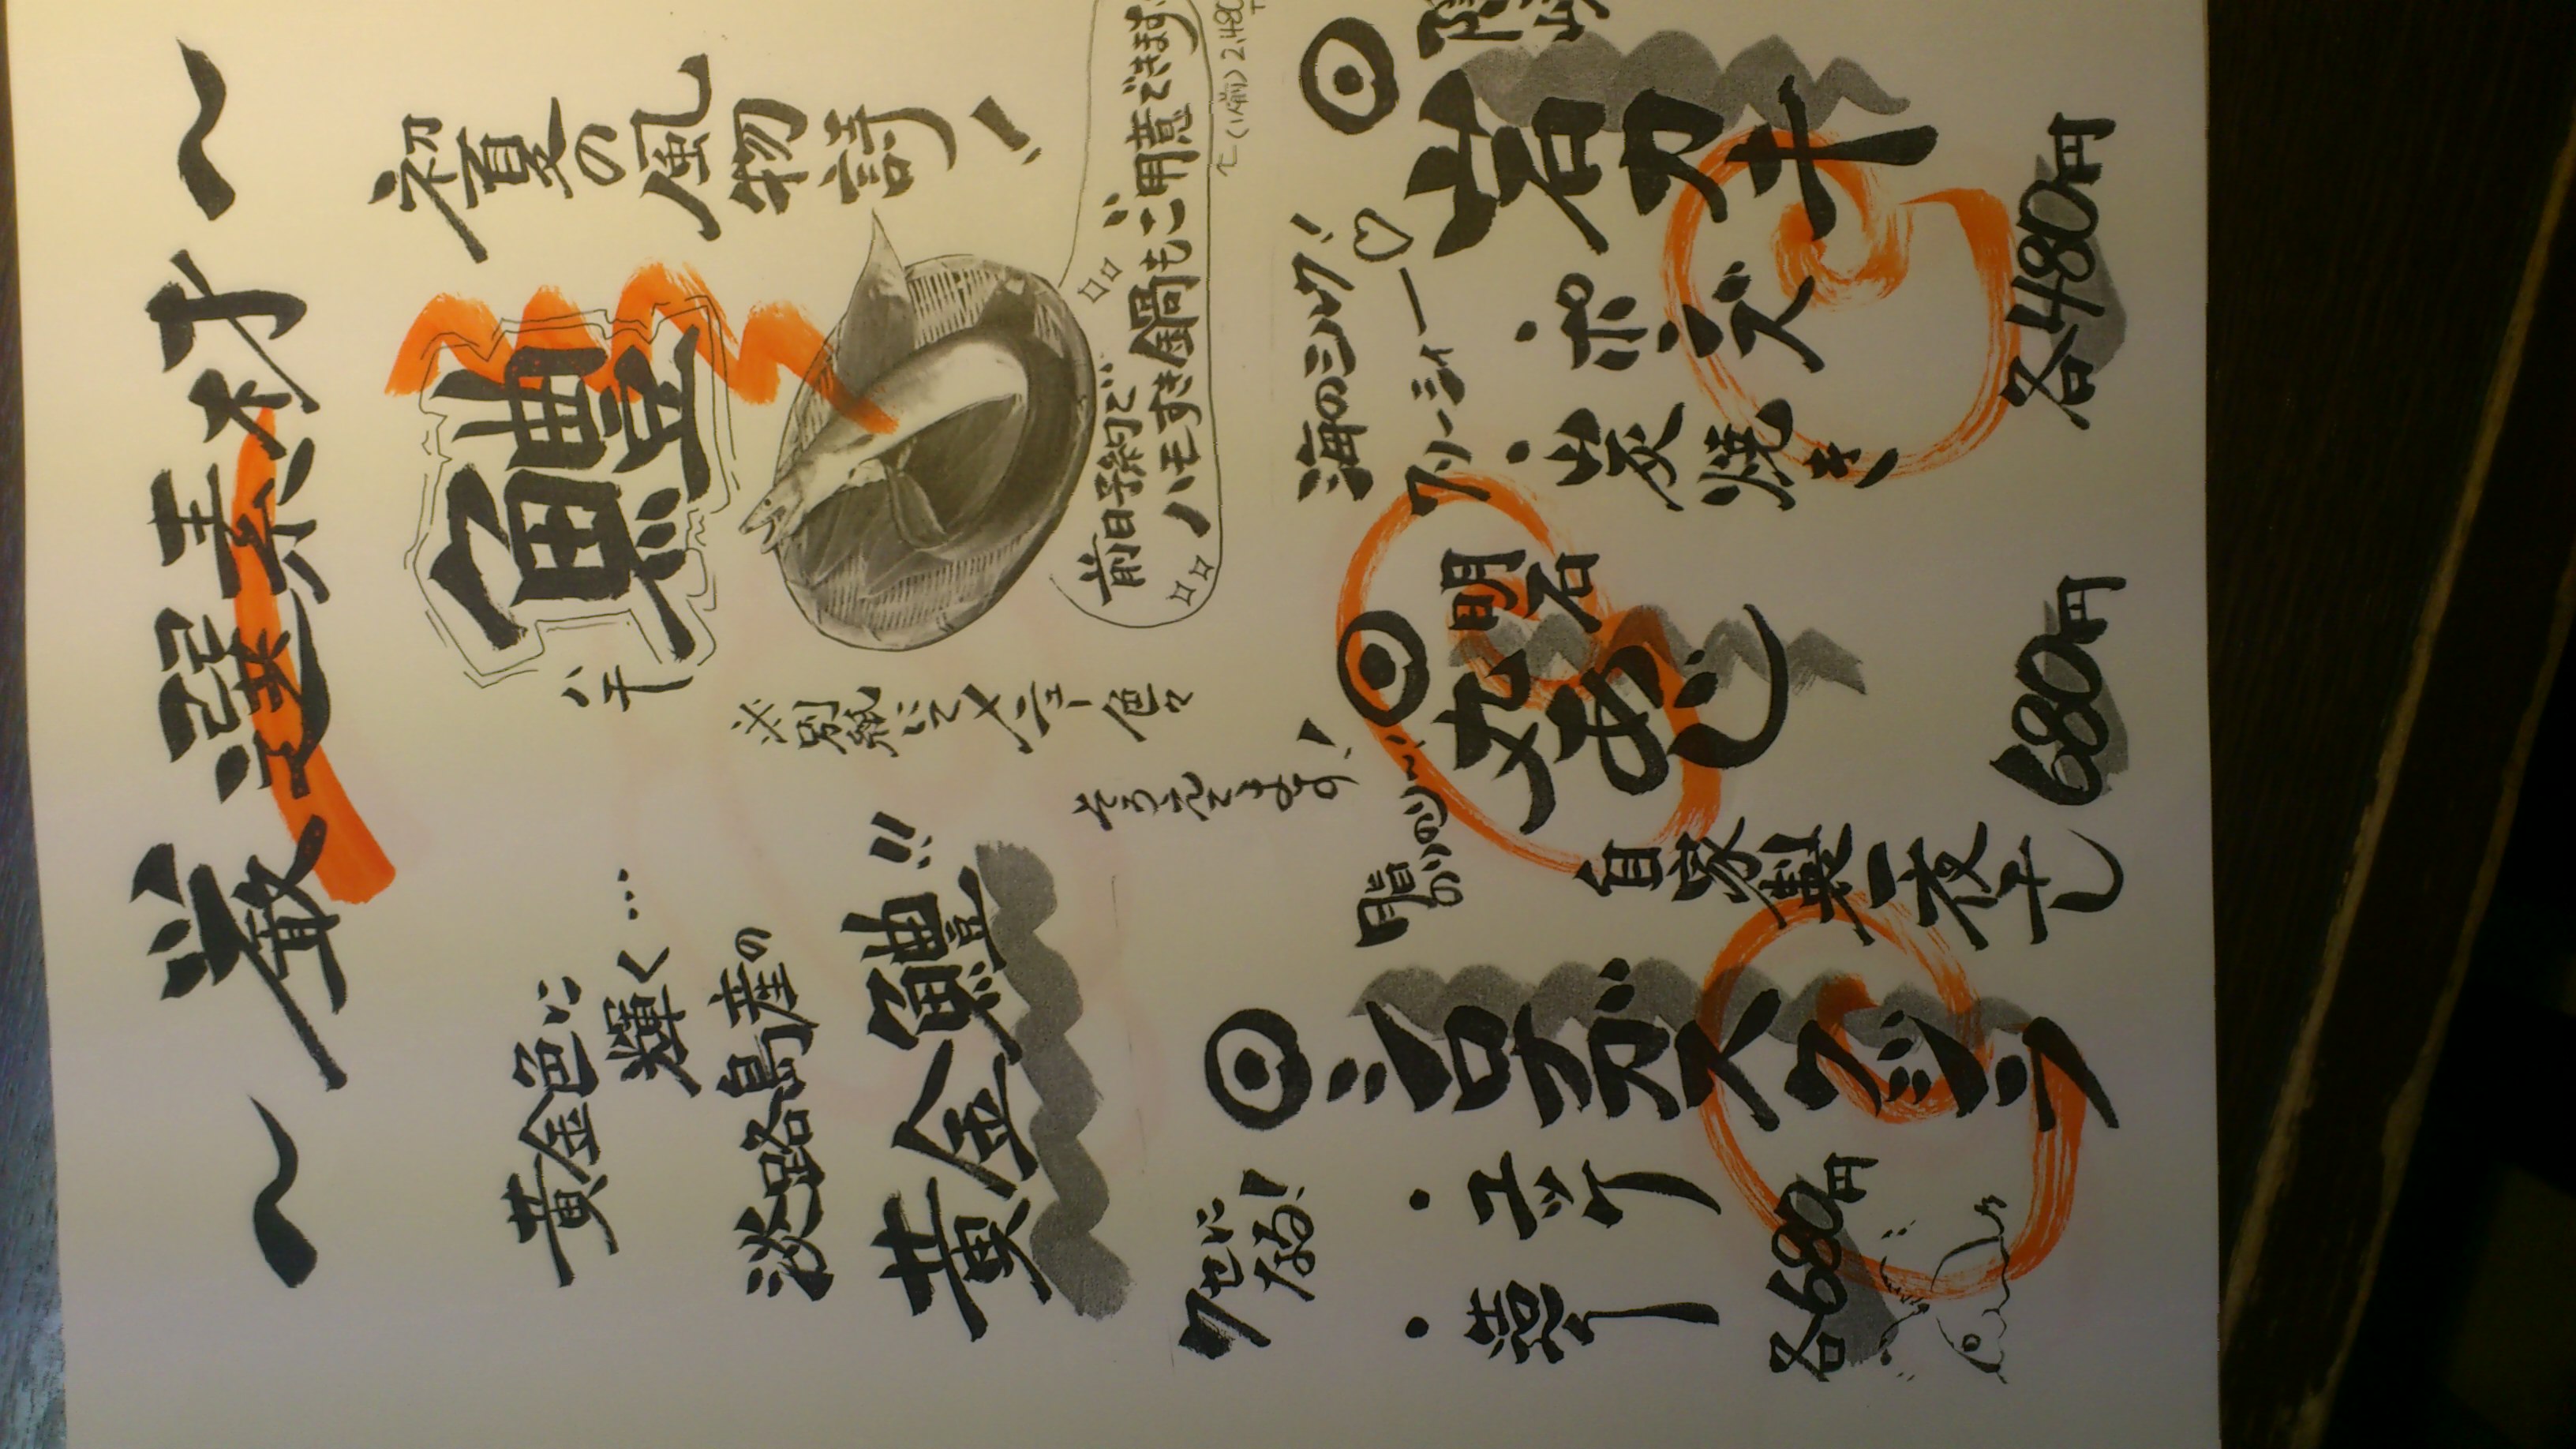 〜厳選素材〜
初夏の風物詩!
ハモ
鱧
前日予約で
ハモすき鍋もご用意できます
(1人前)2,480
※別紙にてメニュー色々
そろえてます!
黄金色に
輝く…
淡路島産の
黄金鱧!!
岩カキ
海のミルク!
クリーミィー♡
・ポンズ
・炭焼き
各480円
脂のりのり〜!
明石
丸あじ
自家製一夜干し
680円
クセに
なる!
シロナガスクジラ
・ユッケ
・造り
各680円